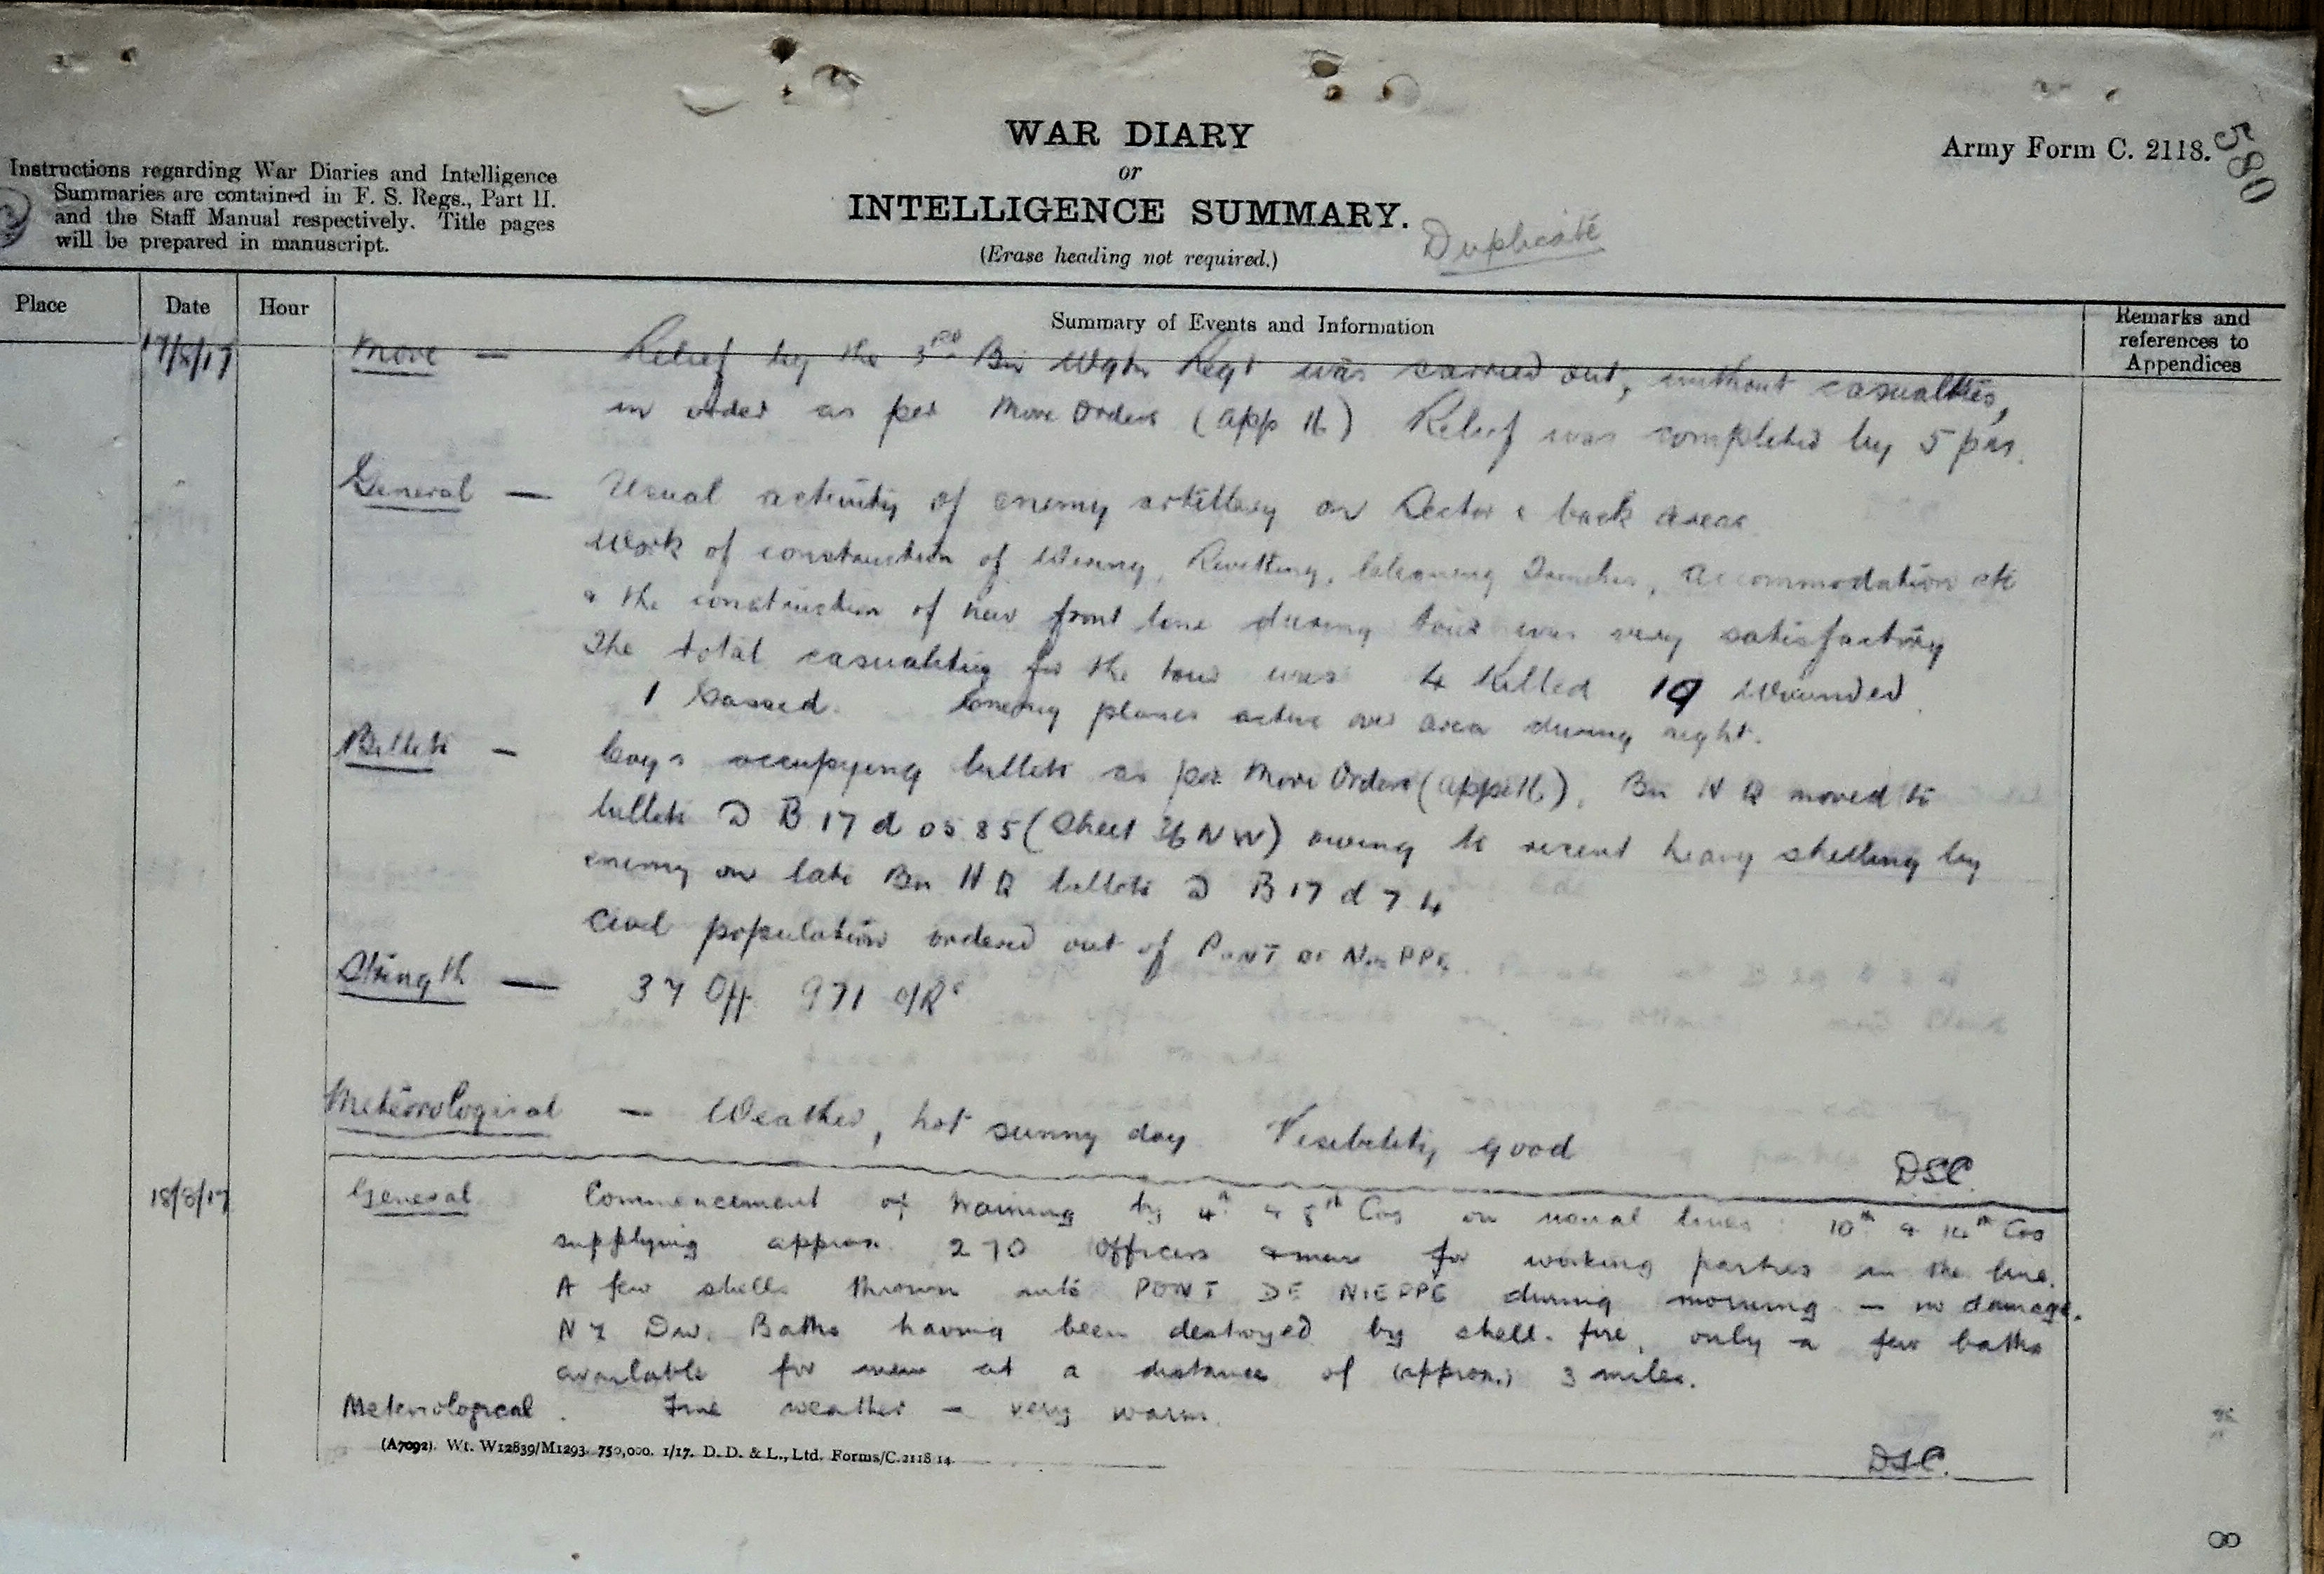 WAR DIARY
or
INTELLIGENCE SUMMARY.
(Erase heading not required.)
Duplicate
Army Form C. 2118.
580
Instructions regarding War Diaries and Intelligence
Summaries are contained in F. S. Regs., Part II.
and the Staff Manual respectively. Title pages
will be prepared in manuscript.
Place Date Hour Summary of Events and Information Remarks and
references to
Appendices
17/8/17 Move — Relief by the 3rd Bn Wgtn Regt was carried out, without casualties,
in order as per Move Orders (App 16) Relief was completed by 5 pm.
General — Usual activity of enemy artillery on Sector & back areas
Work of construction of Wiring, Revetting, Cleaning Trenches, Accommodation etc
& the construction of new front line during tour was very satisfactory
The total casualties for the tour was 4 Killed 19 Wounded
1 Gassed. Enemy planes active over area during night.
Billets — Coys occupying billets as per Move Orders (App 16). Bn H Q moved to
billets @ B 17 d 05 85 (Sheet 36 NW) owing to recent heavy shelling by
enemy on late Bn H Q billets @ B 17 d 7 4
Civil population ordered out of PONT DE NIEPPE.
Strength — 37 Off 971 O/Rs
Meteorological — Weather, hot sunny day Visibility good
DSC.
18/8/17 General Commencement of training by 4th & 8th Cos on usual lines: 10th & 14th Cos
supplying approx. 270 officers & men for working parties in the line.
A few shells thrown into PONT DE NIEPPE during morning — no damage.
N Z Div. Baths having been destroyed by shell-fire, only a few baths
available for men at a distance of (approx.) 3 miles.
Meteorological. Fine weather — very warm.
DSC.
(A7092). Wt. W12839/M1293. 750,000. 1/17. D. D. & L., Ltd. Forms/C.2118 14.
8